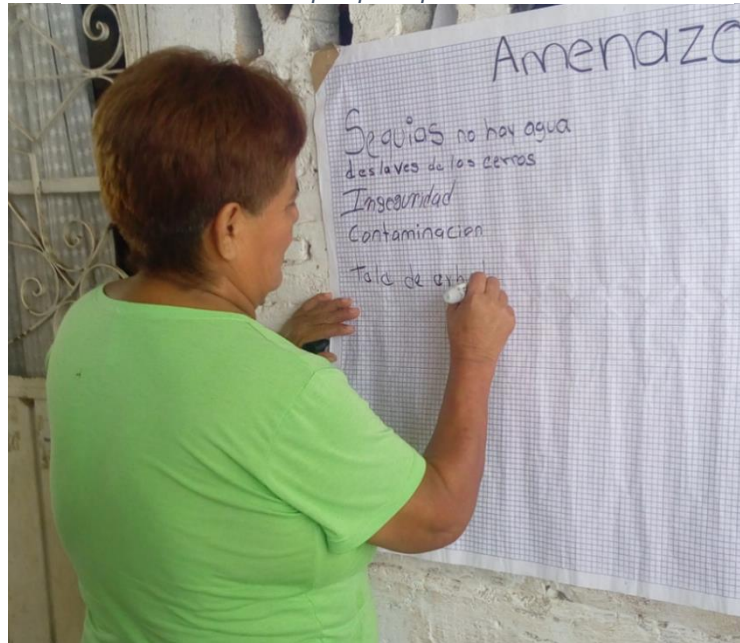 Amenaza
Sequias no hay agua
deslaves de los cerros
Inseguridad
Contaminacion
Tala de